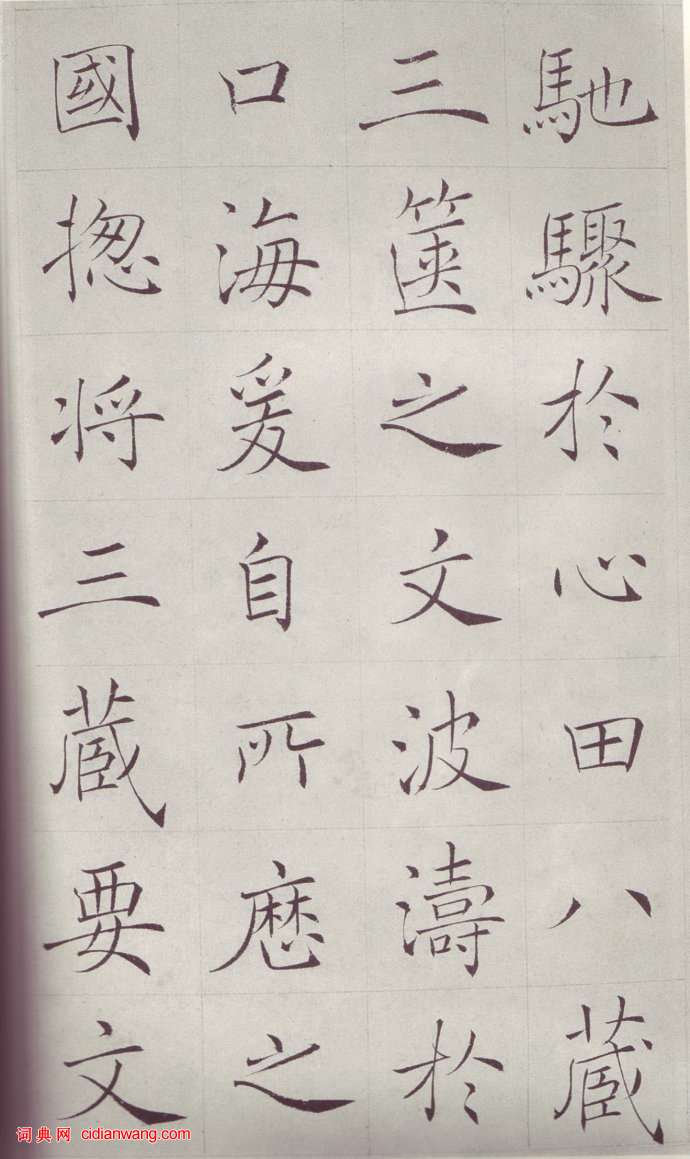 馳驟於心田八蔵
三篋之文波濤於
口海爰自所厯之
國揔将三蔵要文
词典网 cidianwang.com